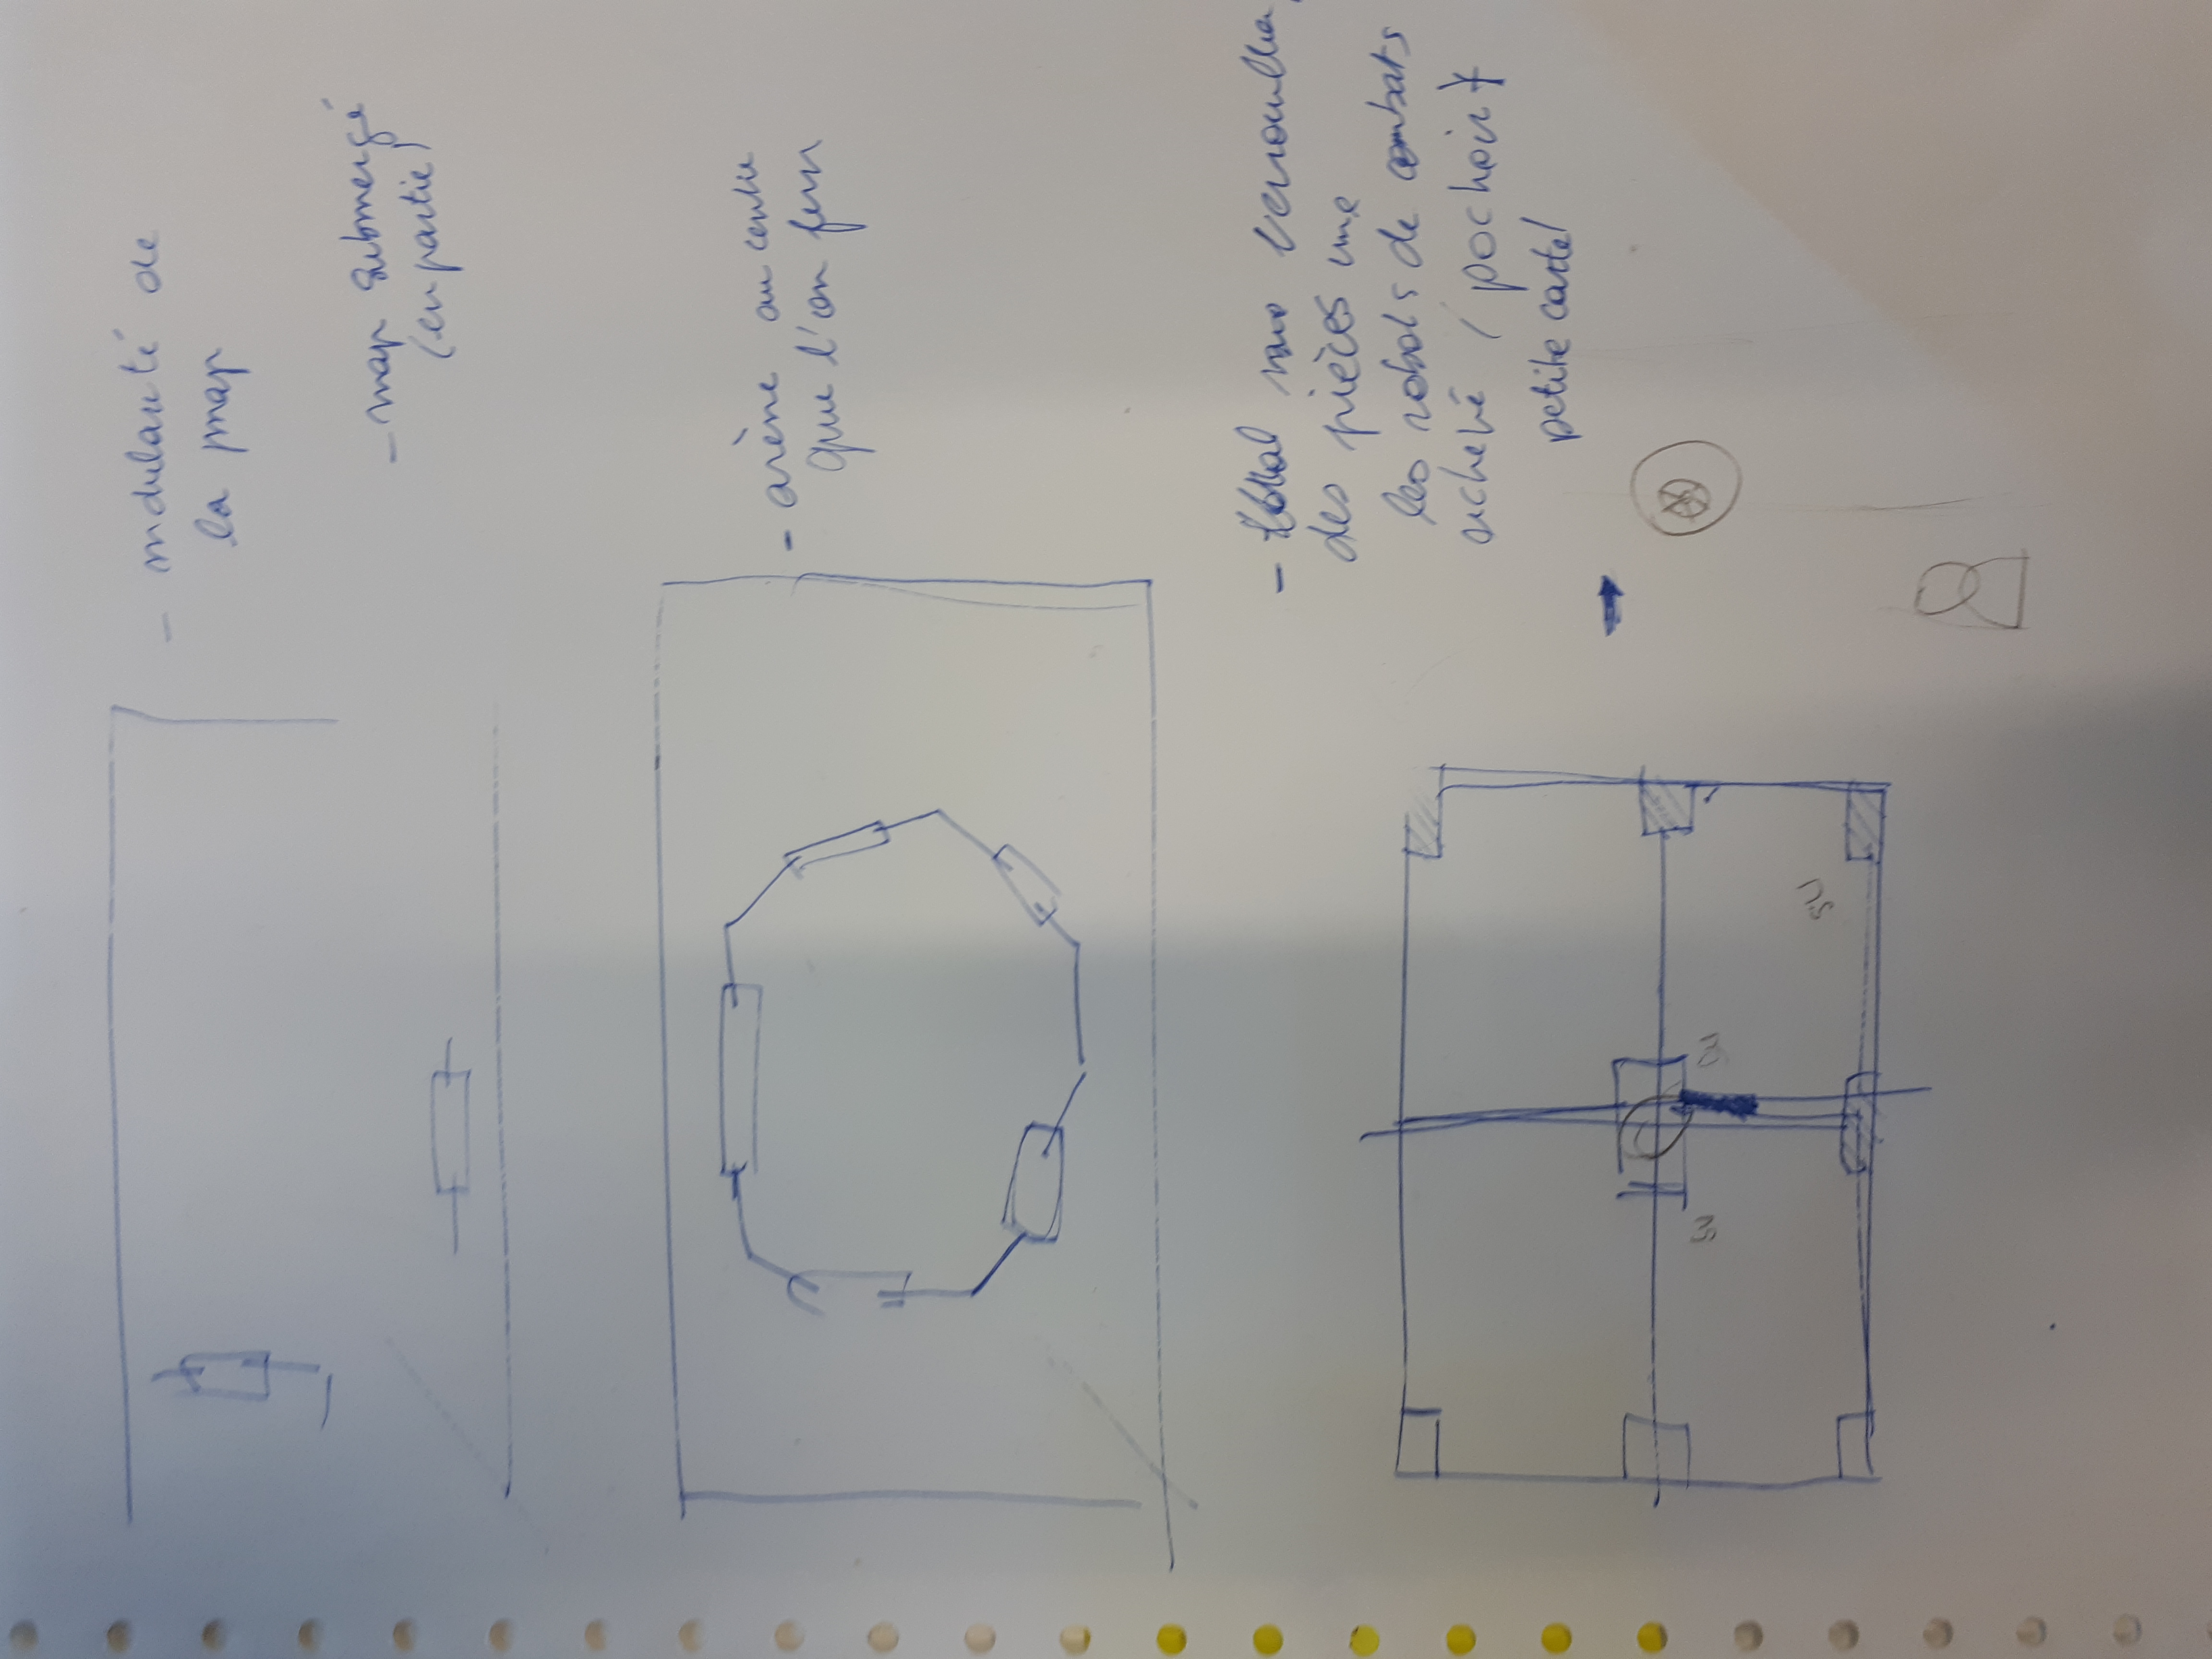 - modularité de
la map
- map submergé
(en partie)
- arène au centre
que l'on ferm
- hotal nous verrouilla
des pièces une
les robots de combats
sichété / pochoir
petite carte